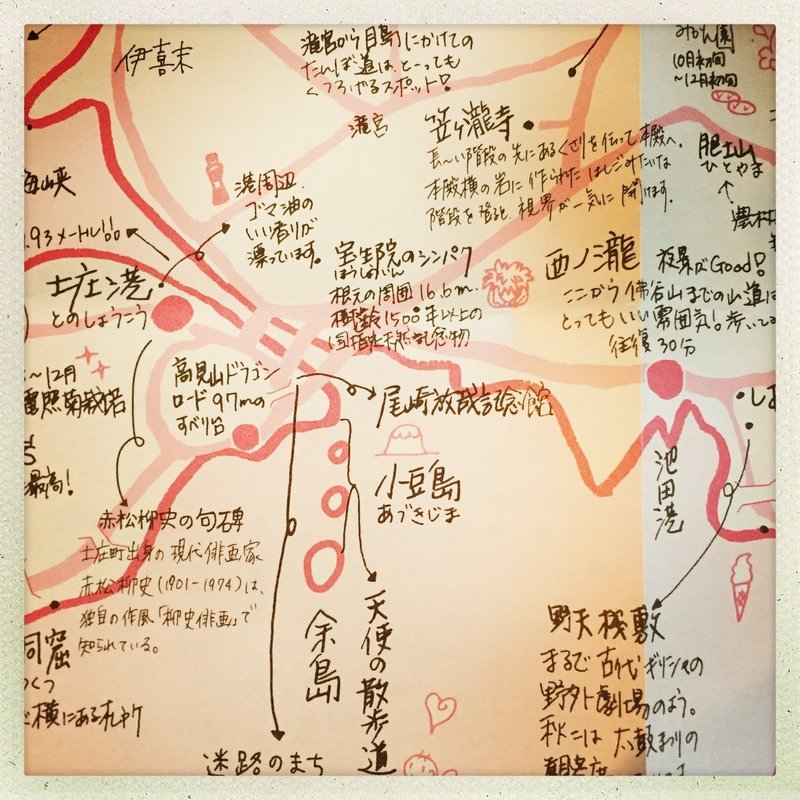 伊喜末
滝宮から目島にかけての
たんぼ道は、とーっても
くつろげるスポット!
滝宮
みかん園
10月初旬
~12月初旬
笠ヶ瀧寺
長~い階段の先にあるくさりを伝って本殿へ。
本殿横の岩に作られたはしごみたいな
階段を登ると、視界が一気に開けます。
肥土山
ひとやま
農村
海峡
.93メートル!!
港周辺
ゴマ油の
いい香りが
漂っています。
土庄港
とのしょうこう
宝生院のシンパク
ほうしょういん
根元の周囲16.6m.
樹齢1500年以上の
国指定特別天然記念物
西ノ瀧
夜景がGood!
ここから佛谷山までの山道は
とってもいい雰囲気!歩いて
往復30分
~12月
電照菊栽培
最高!
高見山ドラゴン
ロード97mの
すべり台
尾崎放哉記念館
小豆島
あづきじま
池田港
赤松柳史の句碑
土庄町出身の現代俳画家
赤松柳史(1901-1974)は、
独自の作風「柳史俳画」で
知られている。
洞窟
くつ
横にある札所
余島
天使の散歩道
迷路のまち
野天桟敷
まるで古代ギリシャの
野外劇場のよう。
秋には太鼓まつりの
観客席